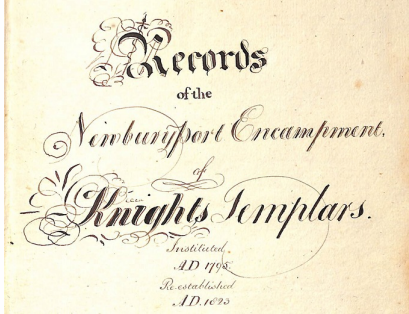 Records
of the
Newburyport Encampment,
of
Knights Templars.
Instituted,
A.D 1795.
Re-established
A.D. 1823